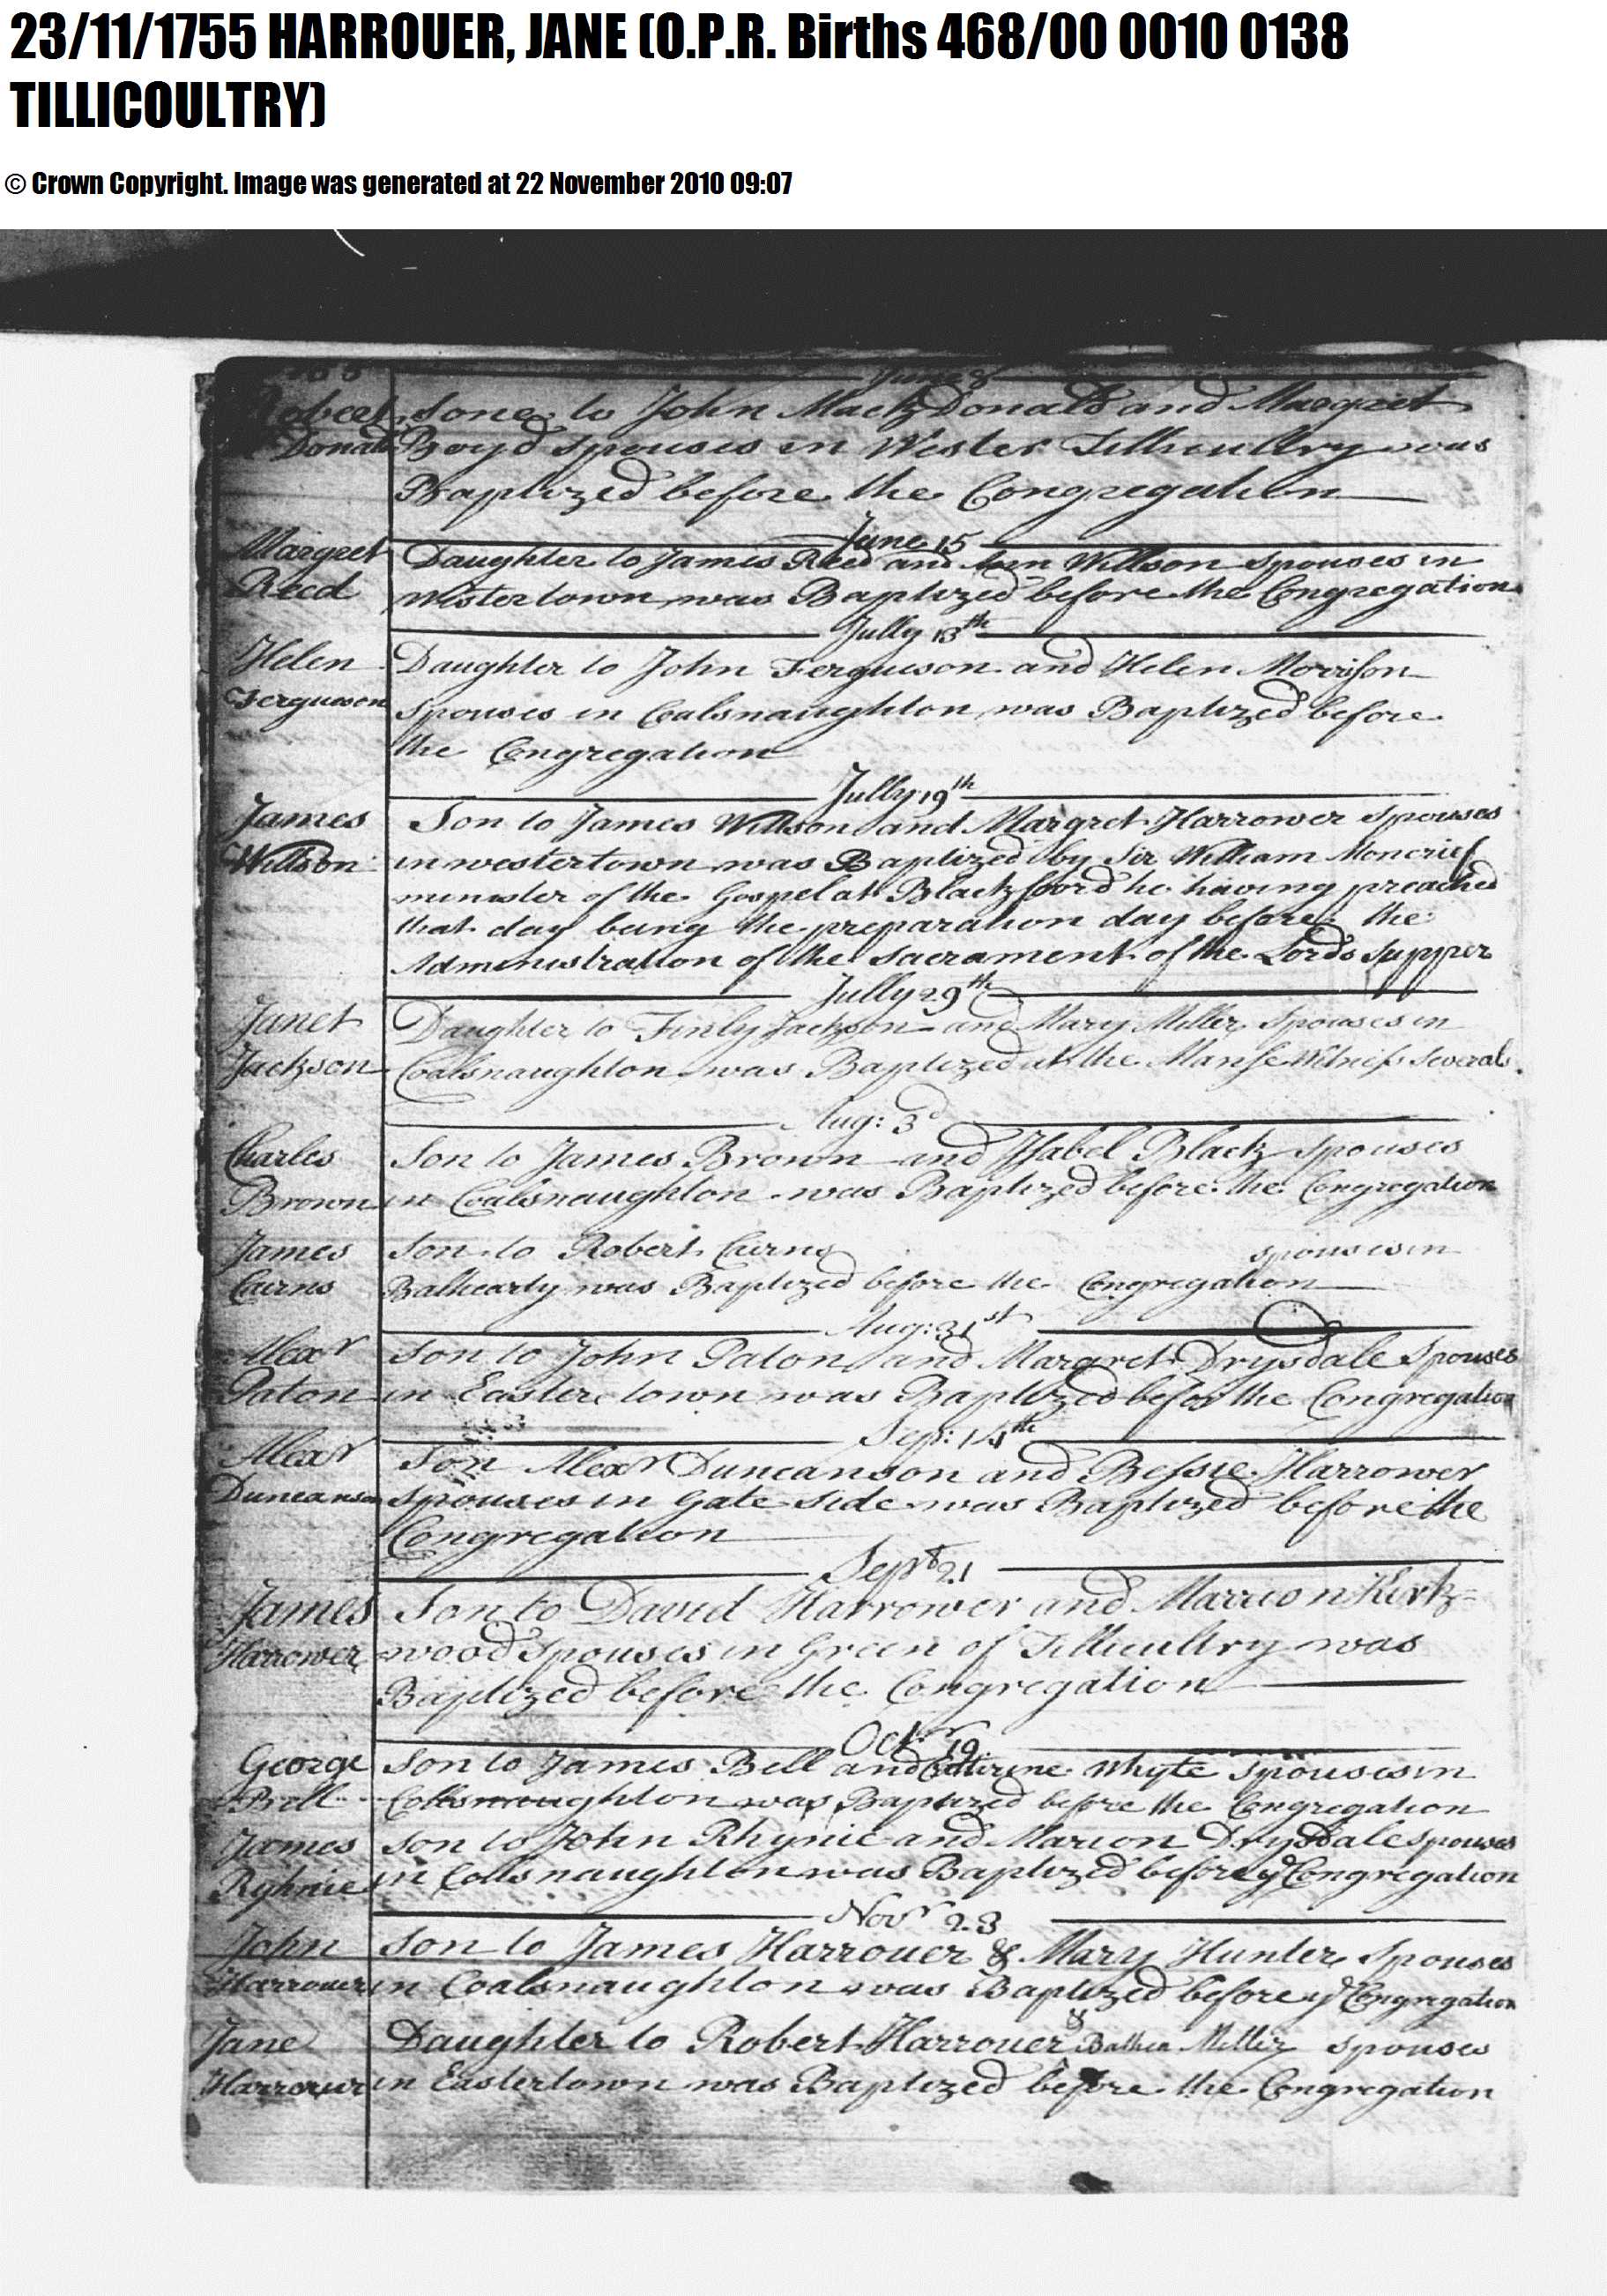 23/11/1755 HARROUER, JANE (O.P.R. Births 468/00 0010 0138
TILLICOULTRY)
© Crown Copyright. Image was generated at 22 November 2010 09:07
June 8
Robert Sone to John Mackdonald and Margret
Donald Boyd Spouses in Wester Tillicultry was
Baptized before the Congregation
June 15
Margret Daughter to James Reed and Ann Willson Spouses in
Reed Westertown was Baptized before the Congregation
Jully 13th
Helen Daughter to John Ferguson and Helen Morrison
Ferguson Spouses in Coalsnaughton was Baptized before
the Congregation
Jully 19th
James Son to James Willson and Margret Harrower Spouses
Willson in westertown was Baptized by Sir William Moncrief
minister of the Gospel at Blackfoord he having preached
that day being the preparation day before the
Administration of the Sacrament of the Lords Supper
Jully 29th
Janet Daughter to Finly Jackson and Mary Miller Spouses in
Jackson Coalsnaughton was Baptized at the Manse Witness Several
Aug: 3d
Charles Son to James Brown and Isabel Black Spouses
Brown in Coalsnaughton was Baptized before the Congregation
James Son to Robert Cairns spouses in
Cairns Balhearty was Baptized before the Congregation
Aug: 31st
Alexr Son to John Paton and Margret Drysdale Spouses
Paton in Easter town was Baptized before the Congregation
Sep: 14th
Alexr Son Alexr Duncanson and Bessie Harrower
Duncanson Spouses in Gate Side was Baptized before the
Congregation
Sept 21
James Son to David Harrower and Marrion Kirk=
Harrower wood Spouses in Green of Tillicultry was
Baptized before the Congregation
Octr 19
George Son to James Bell and Catherine Whyte Spouses in
Bell Collsnaughton was Baptized before the Congregation
James Son to John Rhynie and Marion Drysdale Spouses
Ryhnie in Collsnaughton was Baptized before ye Congregation
Novr 23
John Son to James Harrouer & Mary Hunter Spouses
Harrouer in Coalsnaughton was Baptized before ye Congregation
Jane Daughter to Robert Harrouer & Miller spouses
Harrouer in Eastertown was Baptized before the Congregation